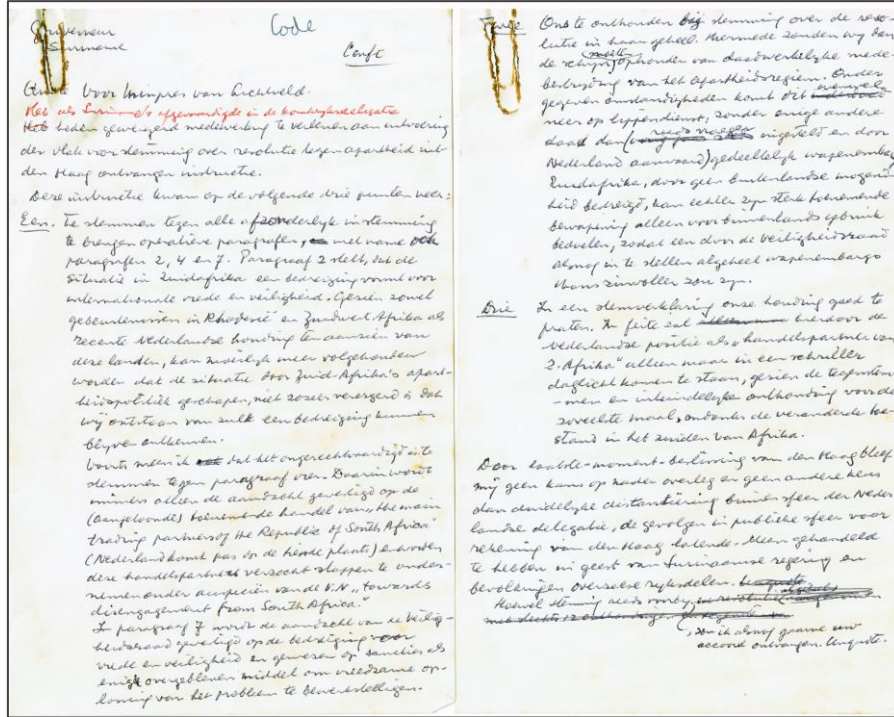 Gouverneur
Suriname
Code
Conft
Quote Voor minpres van Lichtveld.
Heb als Suriname's afgevaardigde in de Koninkrijksdelegatie
heden geweigerd medewerking te verlenen aan uitvoering
der vlak voor stemming over resolutie tegen apartheid uit
den Haag ontvangen instructie.
Deze instructie kwam op de volgende drie punten neer:
Een. Te stemmen tegen alle afzonderlijk in stemming
te brengen operatieve paragrafen, met name ook
paragrafen 2, 4 en 7. Paragraaf 2 stelt, dat de
situatie in Zuidafrika een bedreiging vormt voor
internationale vrede en veiligheid. Gezien zowel
gebeurtenissen in Rhodesië en Zuidwest Afrika als
recente Nederlandse houding ten aanzien van
deze landen, kan moeilijk meer volgehouden
worden dat de situatie door Zuid-Afrika's apart-
heidspolitiek geschapen, niet zozeer verergerd is dat
wij ontstaan van zulk een bedreiging kunnen
blijven ontkennen.
Voorts meen ik dat het ongerechtvaardigd is te
stemmen tegen paragraaf vier. Daarin wordt
immers alleen de aandacht gevestigd op de
(aangetoonde) toenemende handel van "the main
trading partners of the Republic of South Africa"
(Nederland komt pas op de tiende plaats) en worden
deze handelspartners verzocht stappen te onder-
nemen onder auspiciën van de V.N. "towards
disengagement from South Africa."
In paragraaf 7 wordt de aandacht van de Veilig-
heidsraad gevestigd op de bedreiging voor
vrede en veiligheid en gewezen op sancties als
enig overgebleven middel om vreedzame op-
lossing van het probleem te bewerkstelligen.
Twee Ons te onthouden bij stemming over de reso-
lutie in haar geheel. Hiermede zouden wij den
de schijn moeten ophouden van daadwerkelijke mede-
bestrijding van het apartheidsregiem. Onder
gegeven omstandigheden komt dit evenwel
neer op lippendienst, zonder enige andere
daad dan (reeds vroeger ingesteld en door
Nederland aanvaard) gedeeltelijk wapenembargo
Zuidafrika, door geen buitenlandse mogend-
heid bedreigd, kan echter zijn sterk toenemende
bewapening alleen voor binnenlands gebruik
bedoelen, zodat een door de Veiligheidsraad
alsnog in te stellen algeheel wapenembargo
thans zinvoller zou zijn.
Drie In een stemverklaring onze houding goed te
praten. In feite zal hierdoor de
Nederlandse positie als "handelspartner van
Z. Afrika" alleen maar in een schriller
daglicht komen te staan, gezien de tegenstem-
-men en uiteindelijke onthouding voor de
zoveelste maal, ondanks de veranderde toe-
stand in het zuiden van Afrika.
Door laatste-moment-beslissing van den Haag bleef
mij geen kans op nader overleg en geen andere keus
dan duidelijke distantiëring binnen sfeer der Neder
landse delegatie, de gevolgen in publieke sfeer voor
rekening van den Haag latende. Meen gehandeld
te hebben in geest van Surinaamse regering en
bevolkingen overzeese rijksdelen.
Hoewel stemming reeds voorbij,
zou ik alsnog gaarne uw
accoord ontvangen. Unquote.